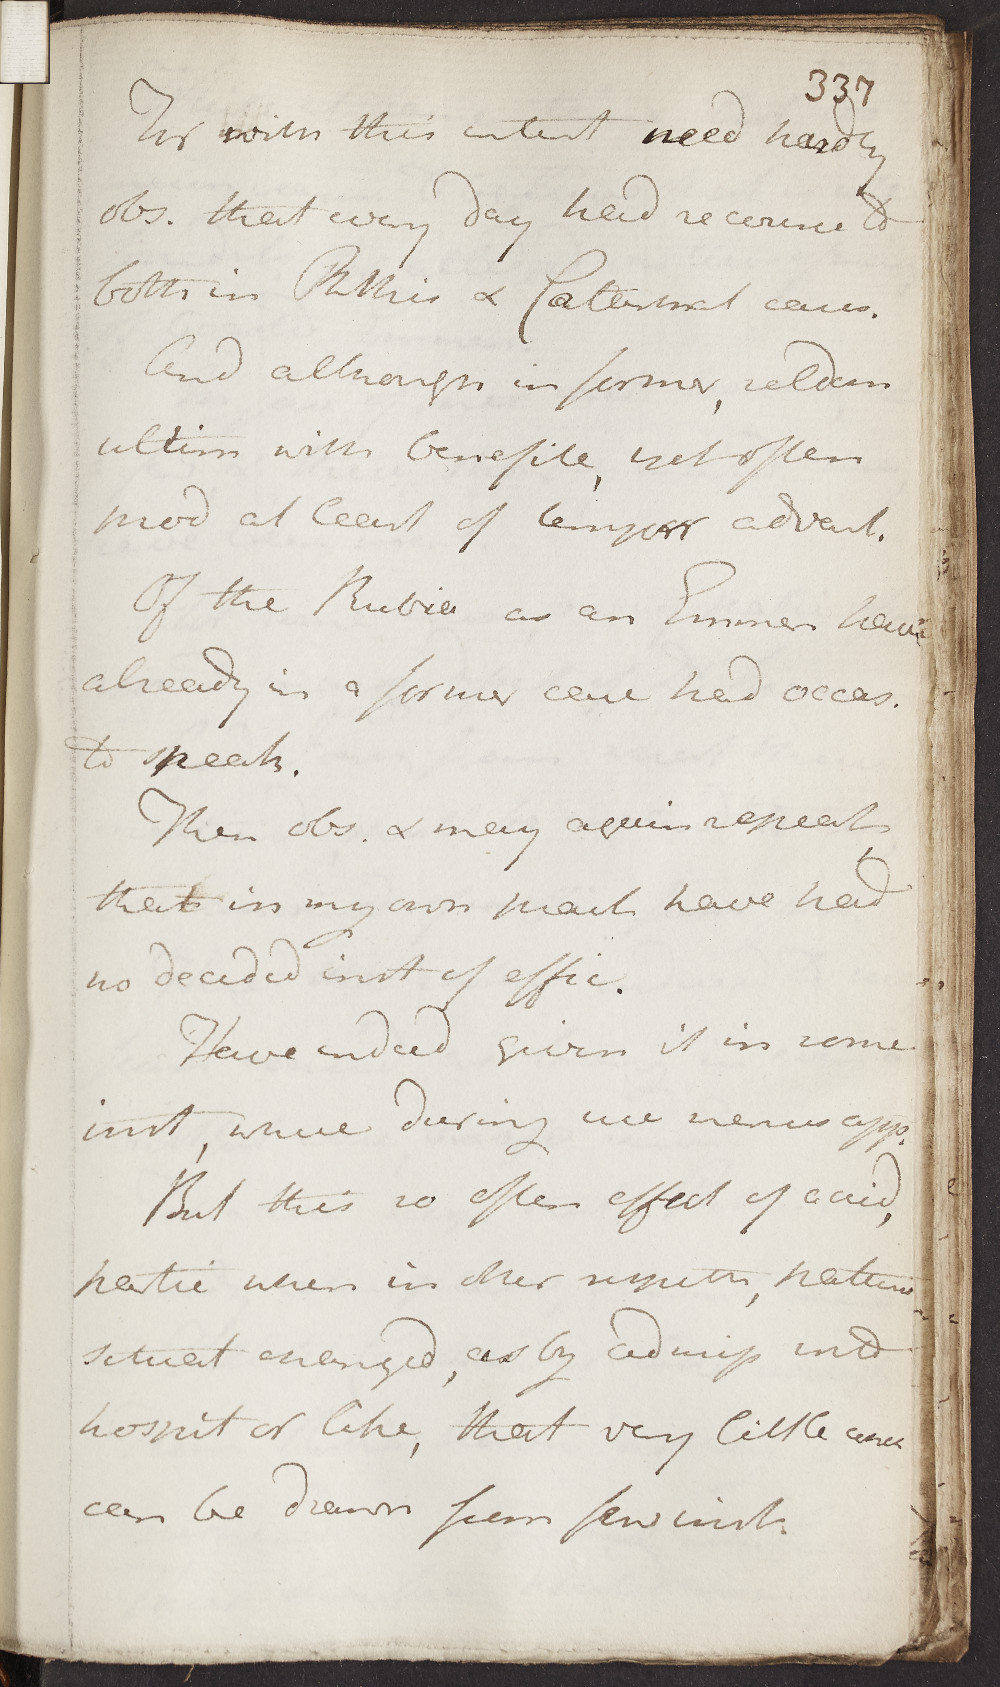 337
For with this intent need hardly
obs. that every day had recourse to
both in Phthis & Catarrhal cases.
And although in former, seldom
ultim with benefite, yet often
prod at least of tempor advant.
Of the Rubia as an Emmen have
already in a former case had occas.
to speak.
Then obs. & may again repeat,
that in my own pract have had
no decided inst of effic.
Have indeed given it in some
inst, where during use menses app.
But this so often effect of accid,
partic when in other respects, patients
situat changed, as by admiss into
hospit or like, that very little
can be drawn from few inst.